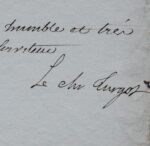 humble et très
serviteur
Le chr Turgot